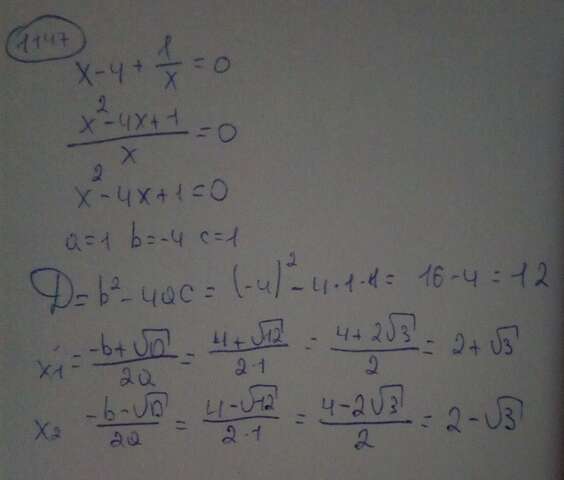 1147
x-4+1/x=0
(x²-4x+1)/x=0
x²-4x+1=0
a=1 b=-4 c=1
D=b²-4ac=(-4)²-4·1·1=16-4=12
x1=(-b+√D)/2a=(4+√12)/2·1=(4+2√3)/2=2+√3
x2 (-b-√D)/2a=(4-√12)/2·1=(4-2√3)/2=2-√3